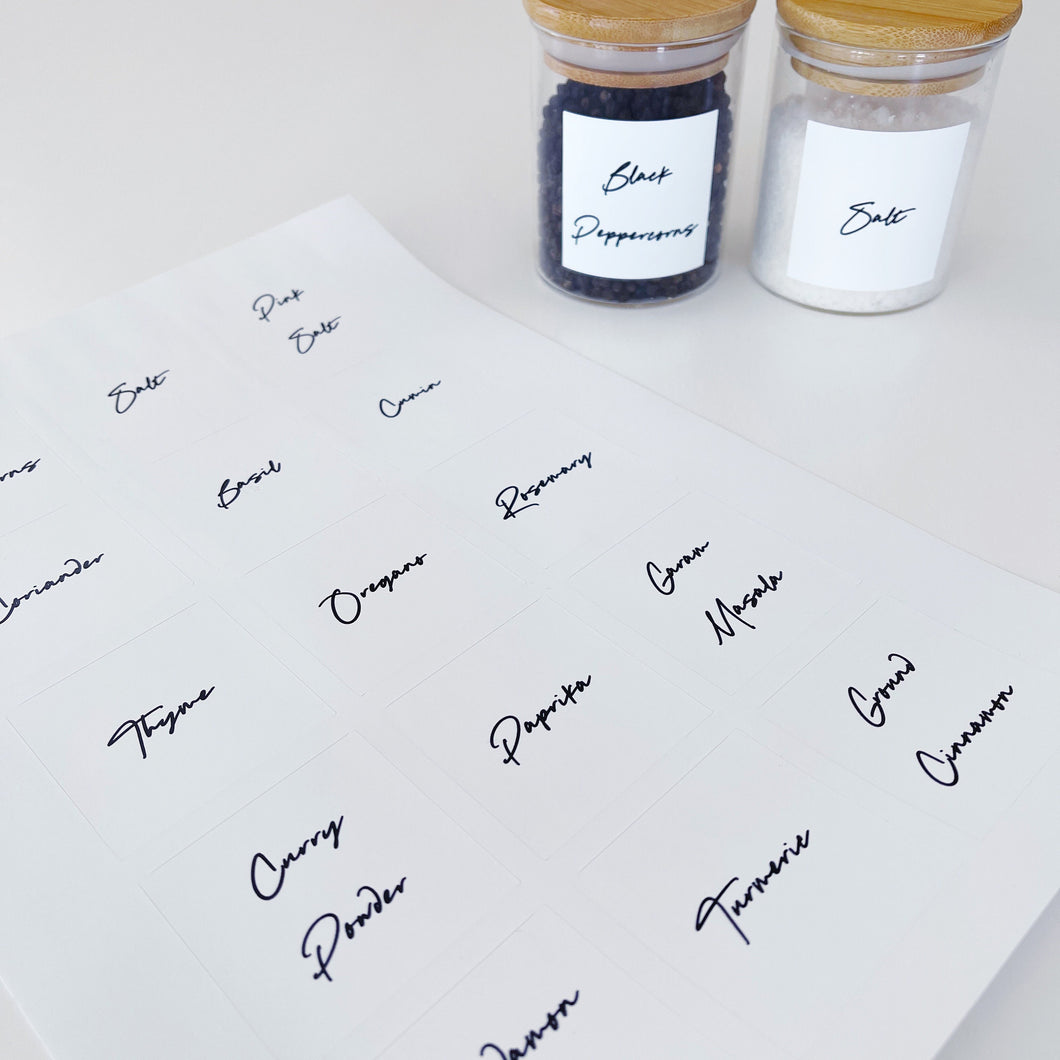 Black
Peppercorns
Salt
Pink
Salt
Salt
Cumin
Basil
Rosemary
Coriander
Oregano
Garam
Masala
Thyme
Paprika
Ground
Cinnamon
Curry
Powder
Turmeric